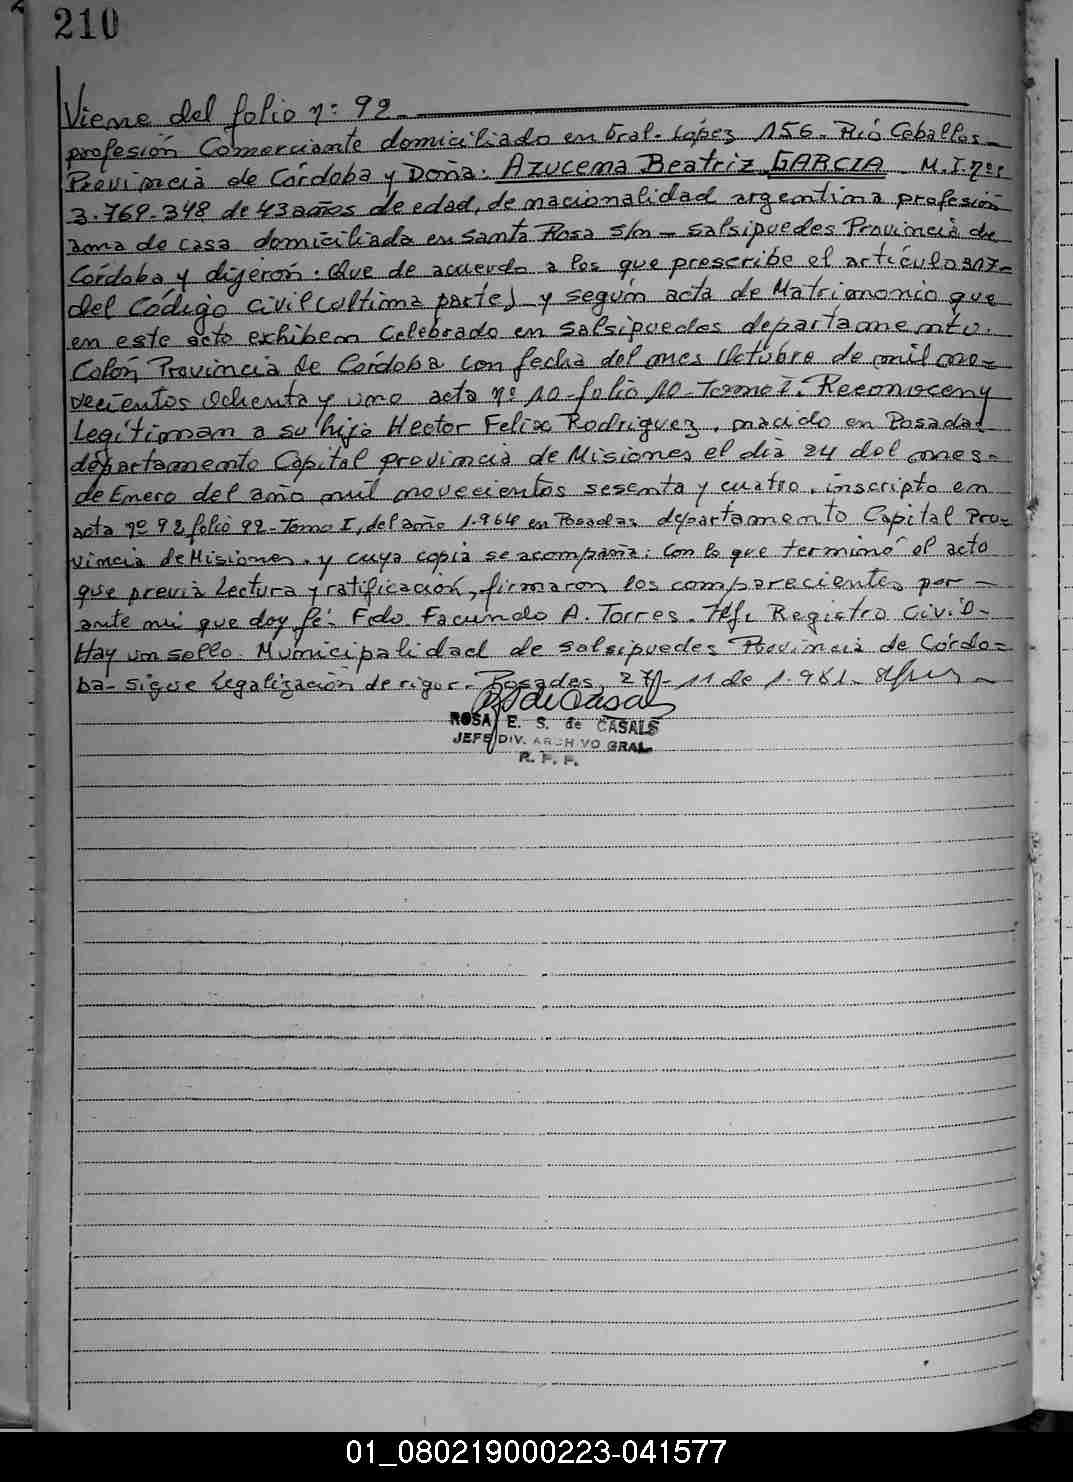 210
Viene del folio nº 92.
profesión Comerciante domiciliado en Gral. López 156. Rió Ceballos.
Provincia de Córdoba y Doña: Azucema Beatriz GARCIA M.I.nº:
3.769.348 de 43 años de edad, de nacionalidad argentina profesión
ama de casa domiciliada en Santa Rosa s/n - Salsipuedes Provincia de
Córdoba y dijeron: Que de acuerdo a los que prescribe el artículo 317-
del Código Civil (ultima parte) y según acta de Matrimonio que
en este acto exhiben Celebrado en Salsipuedes departamento.
Colón Provincia de Córdoba con fecha del mes Octubre de mil no=
vecientos ochenta y uno acta nº 10 folio 10 - Tomo I. Reconocen y
Legitiman a su hijo Hector Felix Rodriguez. nacido en Posadas
departamento Capital provincia de Misiones el dia 24 del mes-
de Enero del año mil novecientos sesenta y cuatro. inscripto en
acta nº 92 folio 92 - Tomo I, del año 1.964 en Posadas departamento Capital Pro=
vincia de Misiones. y cuya copia se acompaña: Con lo que terminó el acto
que previa Lectura y ratificación, firmaron los comparecientes por -
ante mi que doy fé: Fdo. Facundo A. Torres. Jefe Registro Civil-
Hay un sello. Municipalidad de Salsipuedes Provincia de Córdo=
ba- sigue legalización de rigor. Posadas, 27- 11 de 1.981.
ROSA E. S. de CASALS
JEFE DIV. ARCHIVO GRAL.
R. P. P.
01_080219000223-041577